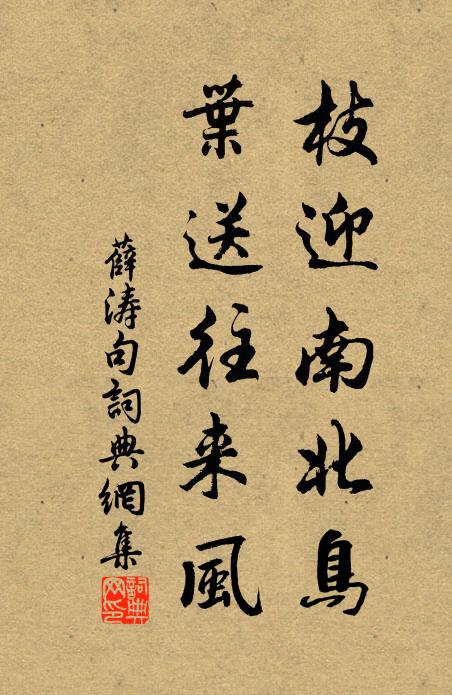 枝迎南北鳥
葉送往来風
薛涛句詞典網集
詞典网印